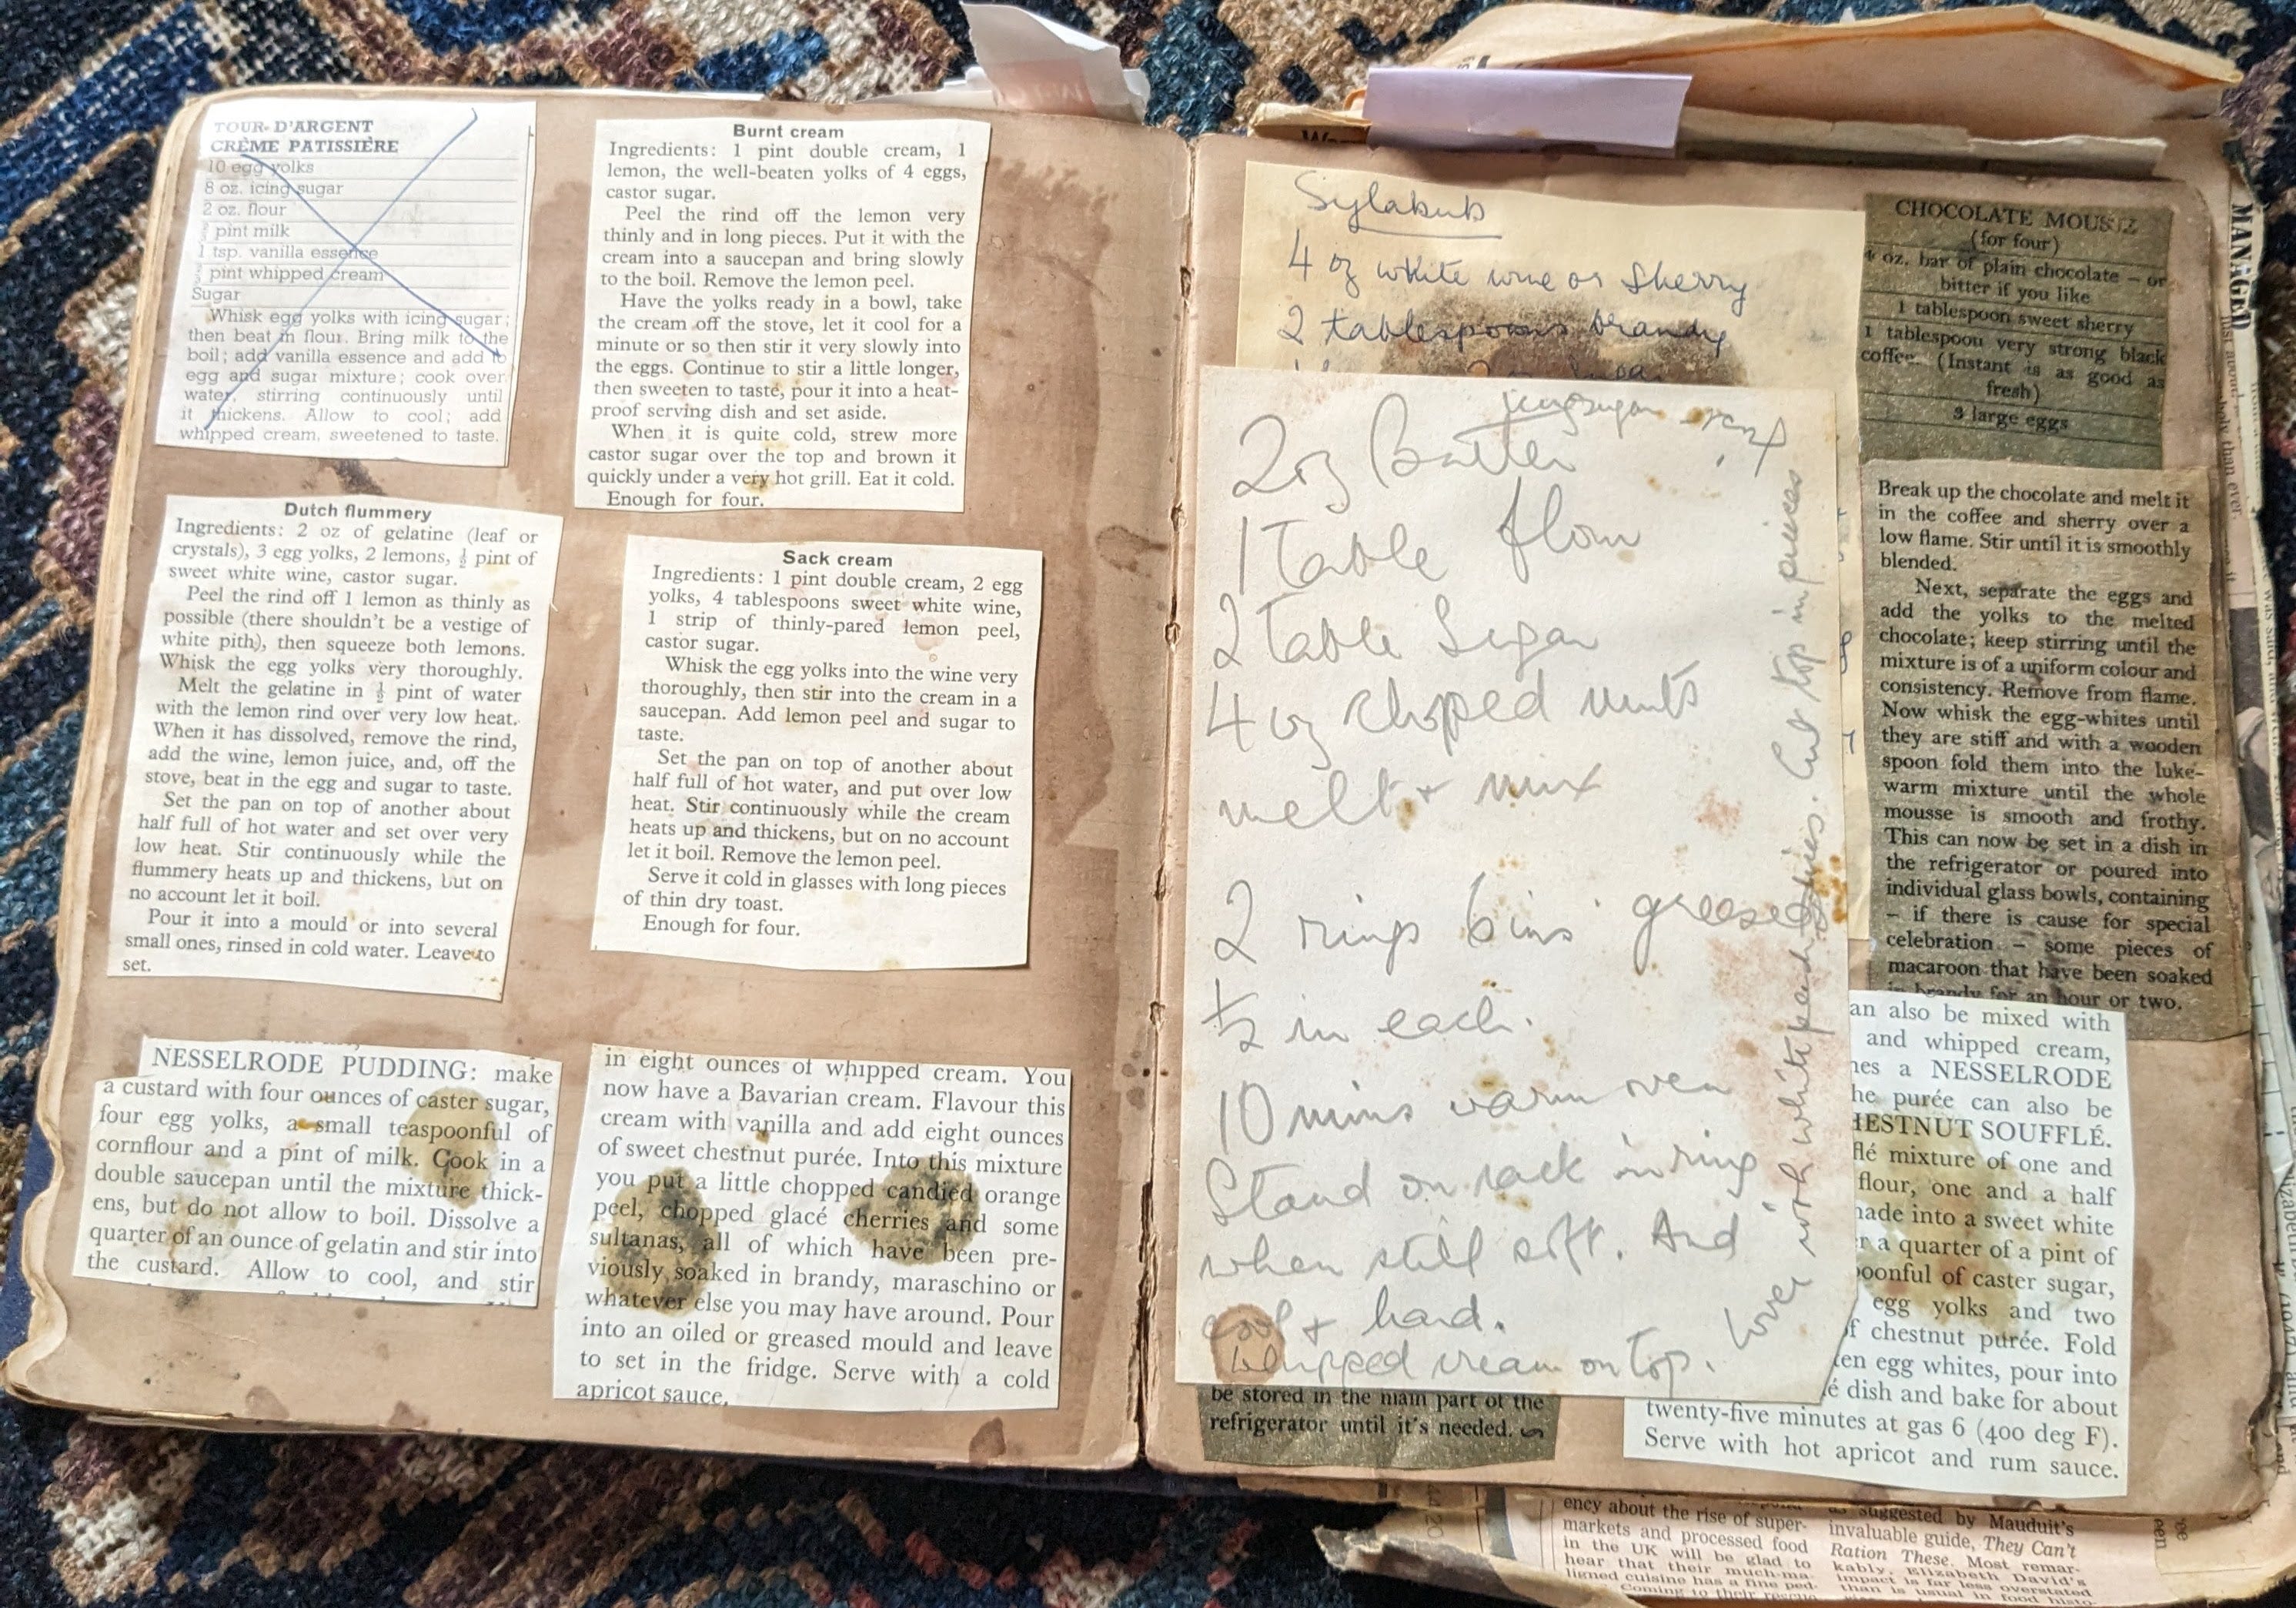 TOUR D'ARGENT
CRÈME PATISSIÈRE
10 egg yolks
8 oz. icing sugar
2 oz. flour
pint milk
1 tsp. vanilla essence
pint whipped cream
Sugar
Whisk egg yolks with icing sugar;
then beat in flour. Bring milk to the
boil; add vanilla essence and add to
egg and sugar mixture; cook over
water, stirring continuously until
it thickens. Allow to cool; add
whipped cream, sweetened to taste.
Dutch flummery
Ingredients: 2 oz of gelatine (leaf or
crystals), 3 egg yolks, 2 lemons, ½ pint of
sweet white wine, castor sugar.
Peel the rind off 1 lemon as thinly as
possible (there shouldn't be a vestige of
white pith), then squeeze both lemons.
Whisk the egg yolks very thoroughly.
Melt the gelatine in ½ pint of water
with the lemon rind over very low heat.
When it has dissolved, remove the rind,
add the wine, lemon juice, and, off the
stove, beat in the egg and sugar to taste.
Set the pan on top of another about
half full of hot water and set over very
low heat. Stir continuously while the
flummery heats up and thickens, but on
no account let it boil.
Pour it into a mould or into several
small ones, rinsed in cold water. Leave to
set.
NESSELRODE PUDDING: make
a custard with four ounces of caster sugar,
four egg yolks, a small teaspoonful of
cornflour and a pint of milk. Cook in a
double saucepan until the mixture thick-
ens, but do not allow to boil. Dissolve a
quarter of an ounce of gelatin and stir into
the custard. Allow to cool, and stir
Burnt cream
Ingredients: 1 pint double cream, 1
lemon, the well-beaten yolks of 4 eggs,
castor sugar.
Peel the rind off the lemon very
thinly and in long pieces. Put it with the
cream into a saucepan and bring slowly
to the boil. Remove the lemon peel.
Have the yolks ready in a bowl, take
the cream off the stove, let it cool for a
minute or so then stir it very slowly into
the eggs. Continue to stir a little longer,
then sweeten to taste, pour it into a heat-
proof serving dish and set aside.
When it is quite cold, strew more
castor sugar over the top and brown it
quickly under a very hot grill. Eat it cold.
Enough for four.
Sack cream
Ingredients: 1 pint double cream, 2 egg
yolks, 4 tablespoons sweet white wine,
1 strip of thinly-pared lemon peel,
castor sugar.
Whisk the egg yolks into the wine very
thoroughly, then stir into the cream in a
saucepan. Add lemon peel and sugar to
taste.
Set the pan on top of another about
half full of hot water, and put over low
heat. Stir continuously while the cream
heats up and thickens, but on no account
let it boil. Remove the lemon peel.
Serve it cold in glasses with long pieces
of thin dry toast.
Enough for four.
in eight ounces of whipped cream. You
now have a Bavarian cream. Flavour this
cream with vanilla and add eight ounces
of sweet chestnut purée. Into this mixture
you put a little chopped candied orange
peel, chopped glacé cherries and some
sultanas, all of which have been pre-
viously soaked in brandy, maraschino or
whatever else you may have around. Pour
into an oiled or greased mould and leave
to set in the fridge. Serve with a cold
apricot sauce.
Sylabub
4 oz white wine or Sherry
2 tablespoons brandy
2oz Butter
1 Table flour
2 Table Sugar
4 oz chopped nuts
melt + mix
2 rings 6ins greased
½ in each.
10 mins warm oven
Stand on rack in ring
when still soft. And
cool + hard.
Whipped cream on top.
Cut top in pieces
be stored in the main part of the
refrigerator until it's needed.
CHOCOLATE MOUSSE
(for four)
4 oz. bar of plain chocolate – or
bitter if you like
1 tablespoon sweet sherry
1 tablespoon very strong black
coffee. (Instant is as good as
fresh)
3 large eggs
Break up the chocolate and melt it
in the coffee and sherry over a
low flame. Stir until it is smoothly
blended.
Next, separate the eggs and
add the yolks to the melted
chocolate; keep stirring until the
mixture is of a uniform colour and
consistency. Remove from flame.
Now whisk the egg-whites until
they are stiff and with a wooden
spoon fold them into the luke-
warm mixture until the whole
mousse is smooth and frothy.
This can now be set in a dish in
the refrigerator or poured into
individual glass bowls, containing
– if there is cause for special
celebration – some pieces of
macaroon that have been soaked
in brandy for an hour or two.
an also be mixed with
and whipped cream,
nes a NESSELRODE
he purée can also be
HESTNUT SOUFFLÉ.
flé mixture of one and
flour, one and a half
nade into a sweet white
r a quarter of a pint of
poonful of caster sugar,
egg yolks and two
of chestnut purée. Fold
ten egg whites, pour into
é dish and bake for about
twenty-five minutes at gas 6 (400 deg F).
Serve with hot apricot and rum sauce.
MANAGED
ency about the rise of super-
markets and processed food
in the UK will be glad to
hear that their much-ma-
ligned cuisine has a fine ped-
Coming to their rescue
as suggested by Mauduit's
invaluable guide, They Can't
Ration These. Most remar-
kably, Elizabeth David's
impact is far less overstated
than is usual in food histo-